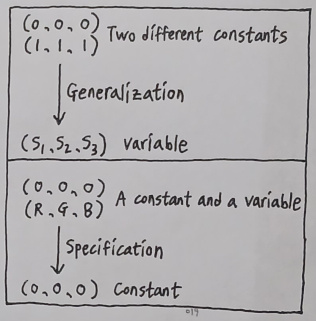 (0, 0, 0)
(1, 1, 1) Two different constants
Generalization
(S1, S2, S3) variable
(0, 0, 0)
(R, G, B) A constant and a variable
Specification
(0, 0, 0) Constant
019